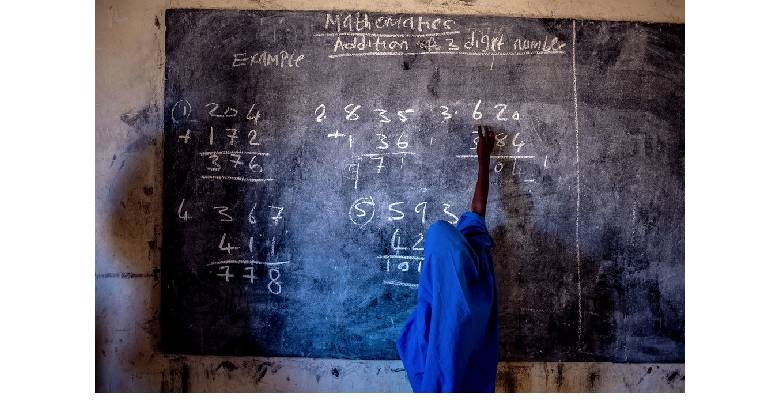 Mathematics
Addition of 3 digit number
Example
① 204
+ 172
376
2. 835
+ 136
971
3. 620
384
1
4. 367
411
778
⑤ 593
42
101